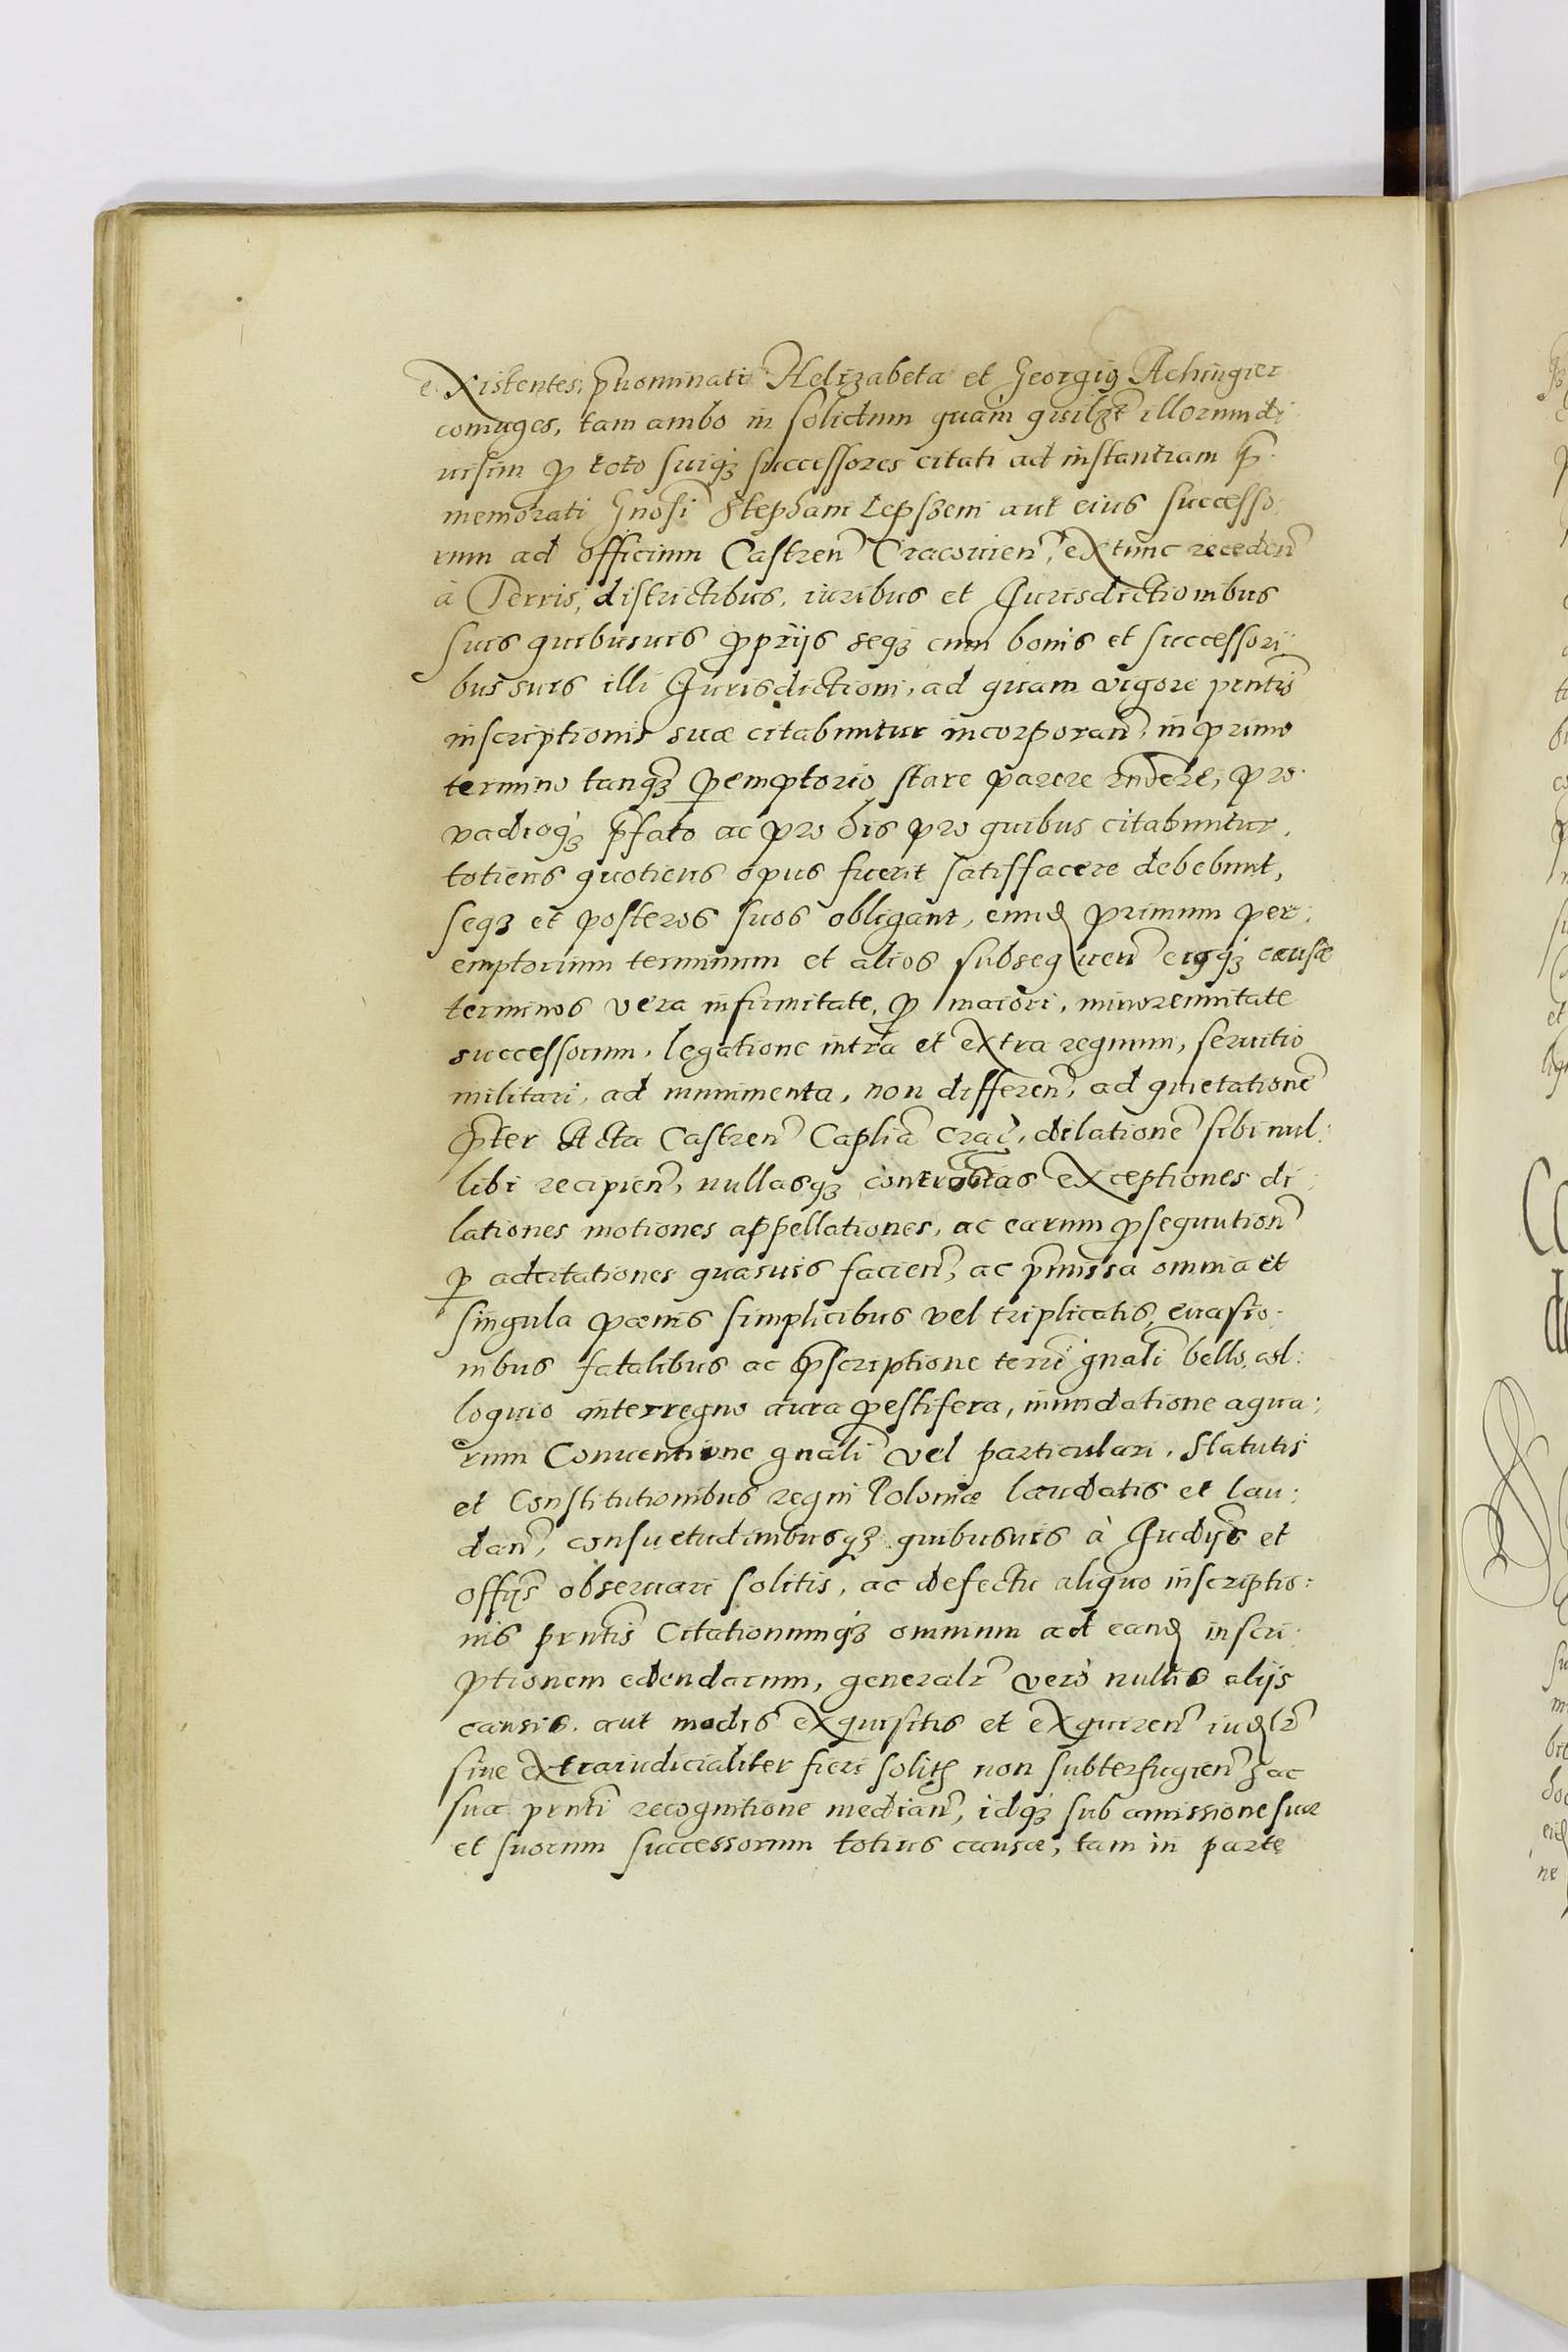 existentes, pnominati Helizabeta et Georgig Achingier
coniuges, tam ambo in solidum quam quilzt illorum di
uisim p toto suiqz successores citati ad instantiam p
memorati Gnosi Stephani Lepszeni aut eius successo
rum ad officium Castren Cracouien, extunc receden
à Terris, districtibus, iuribus et Jurisdictionibus
suis quibusuis pprijs seqz cum bonis et successori
bus suis illi Jurisdictioni, ad quam vigore pntis
inscriptionis suæ citabuntur incorporan, in primo
termino tanqz pemptorio stare parere rndere, pro
vadioqz pfato ac pro his pro quibus citabuntur,
totiens quotiens opus fuerit satisfacere debebunt,
seqz et posteros suos obligant, eund primum per:
emptorium terminum et alios subsequen eigqz causæ
terminos vera infirmitate, p maiori, minorennitate
successorum, legatione intra et extra regnum, seruitio
militari, ad munimenta, non differen, ad quietatione
pter Acta Castren Caplia Crac, dilatione sibi nul:
libi recipien, nullasqz contrarias exceptiones di
lationes motiones appellationes, ac earum psequution
p adcitationes quasuis facien, ac pmissa omnia et
singula pænis simplicibus vel triplicatis, euasio:
nibus fatalibus ac pscriptione terre gnali bello, col:
loquio interregno aura pestifera, inundatione aqua:
rum Conuentione gnali vel particulari, Statutis
et Constitutionibus regni Poloniæ laudatis et lau:
dan, consuetudinibusqz quibusuis à Judijs et
offijs obseruari solitis, ac defectu aliquo inscriptio:
nis pntis Citationumqz omnium ad eand inscri
ptionem edendarum, generalr verò nullis alijs
causis, aut modis exquisitis et exquiren iudlr
siue extraiudicialiter fieri solit non subterfugien, ac
sua pnti recognitione median, idqz sub amissione suæ
et suorum successorum totius causæ, tam in parte